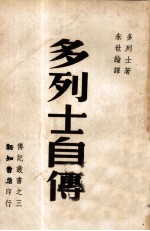 多列士著
朱世綸譯
多列士自傳
傳記叢書之三
新知書店印行